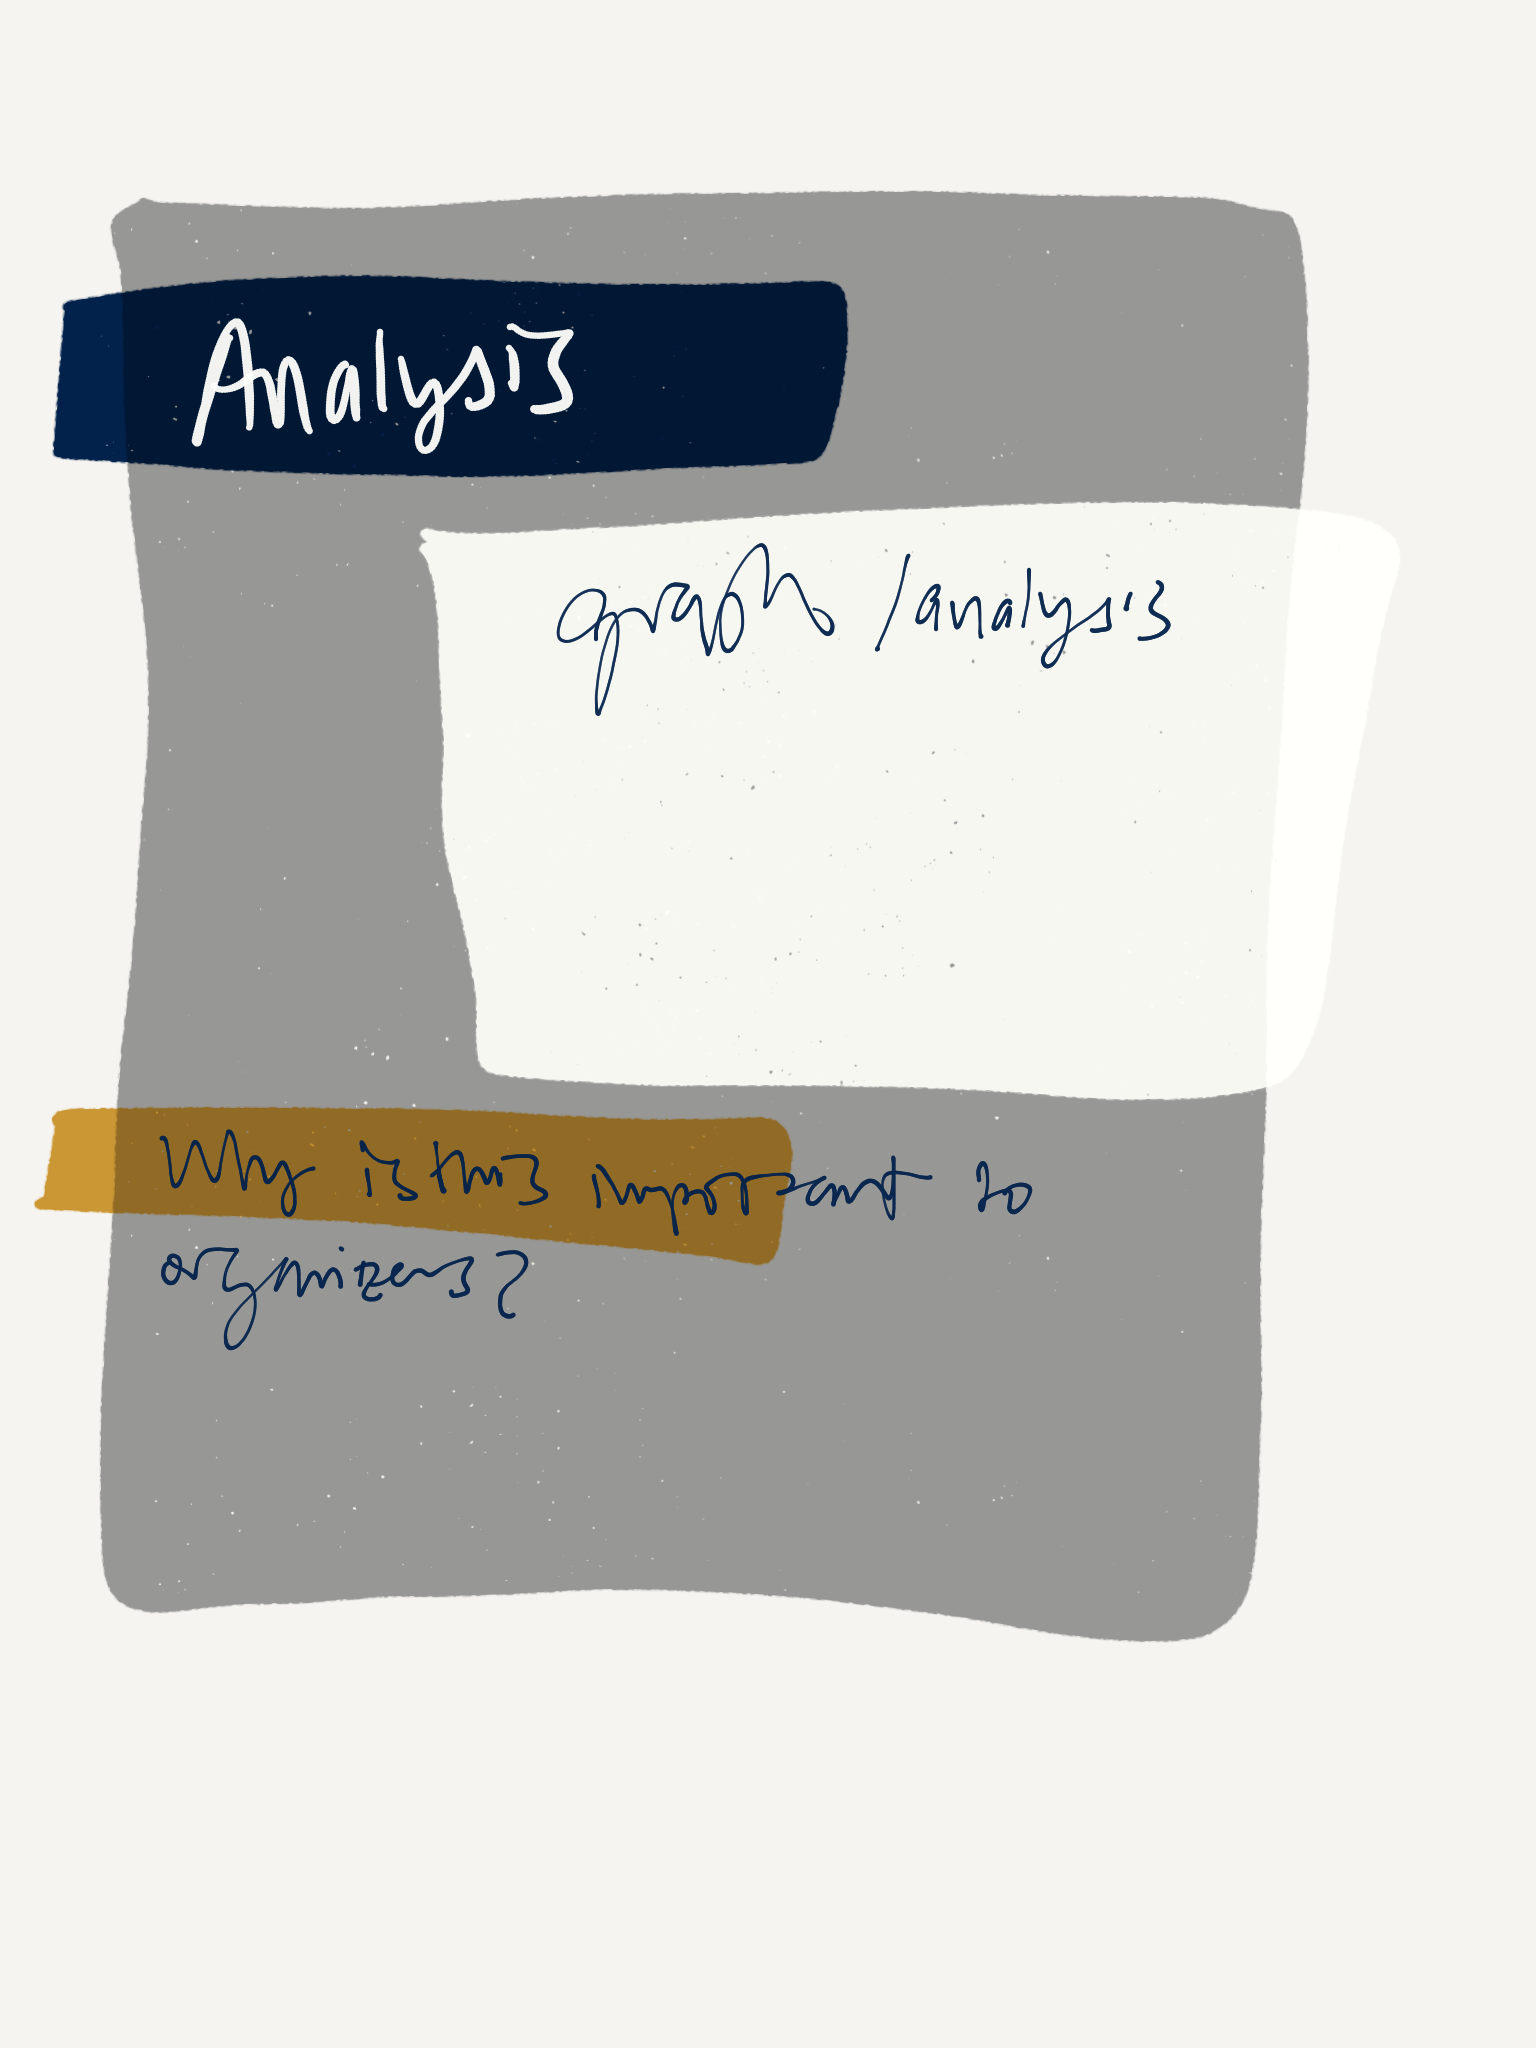 Analysis
graph /analysis
Why is this important to
organizers?